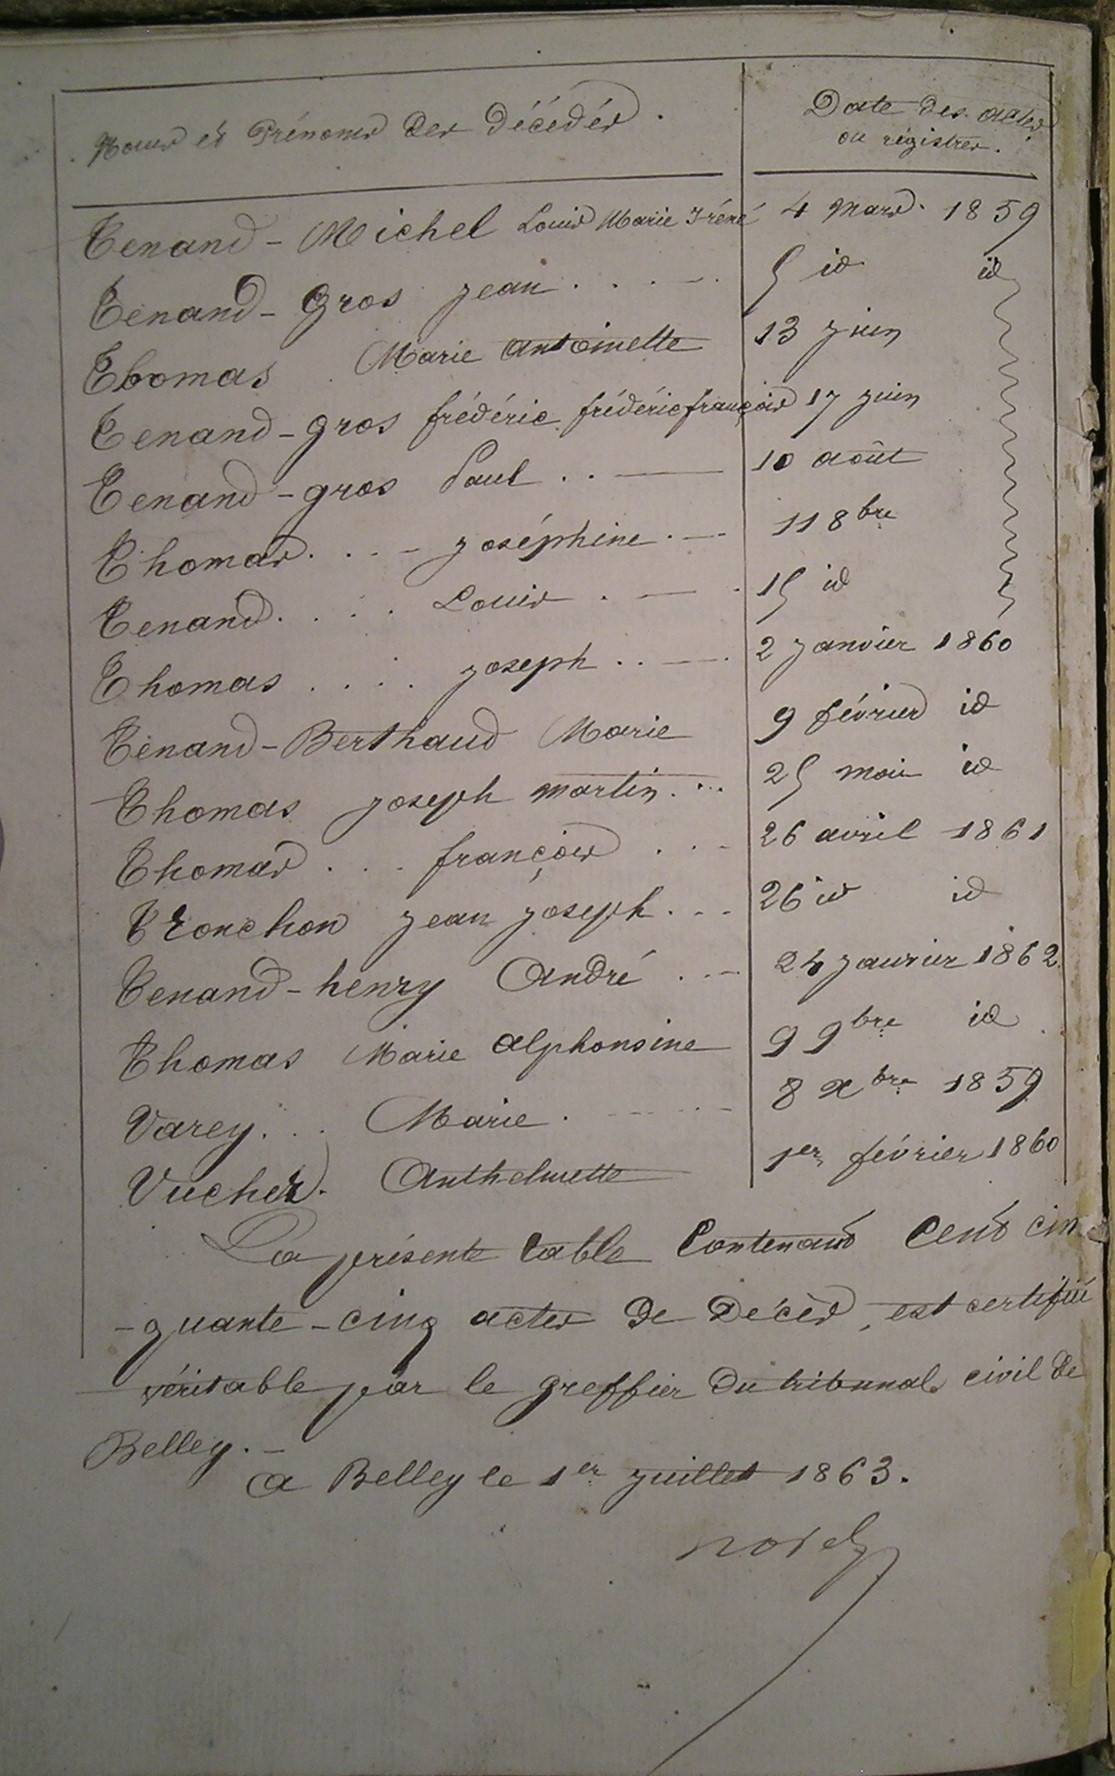 Noms et Prénoms des décédés. Date des actes
ou régistres.
Tenand-Michel Louis Marie Iréné 4 mars 1859
Tenand-gros jean . . . - . 5 id id
Thomas Marie antoinette 13 juin
Tenand-gros frédéric frédéric françois 17 juin
Tenand-gros Paul . . — 10 août
Thomas . . . - joséphine . — 11 8bre
Tenand . . . . Louis . — . 15 id
Thomas . . . . joseph . . — . 2 janvier 1860
Tenand-Berthaud Marie 9 février id
Thomas joseph martin . . . 25 mai id
Thomas . . . françois . . - 26 avril 1861
Tronchon jean joseph . . - 26 id id
Tenand-henry André . . - 24 janvier 1862
Thomas Marie alphonsine 9 9bre id
Varey . . . Marie . - - - 8 Xbre 1859
Vucher . Anthelmette 1er février 1860
La présente table Contenant Cent cin
-quante-cinq actes de décès, est certifiée
véritable par le greffier du tribunal civil de
Belley. -
a Belley le 1er juillet 1863.